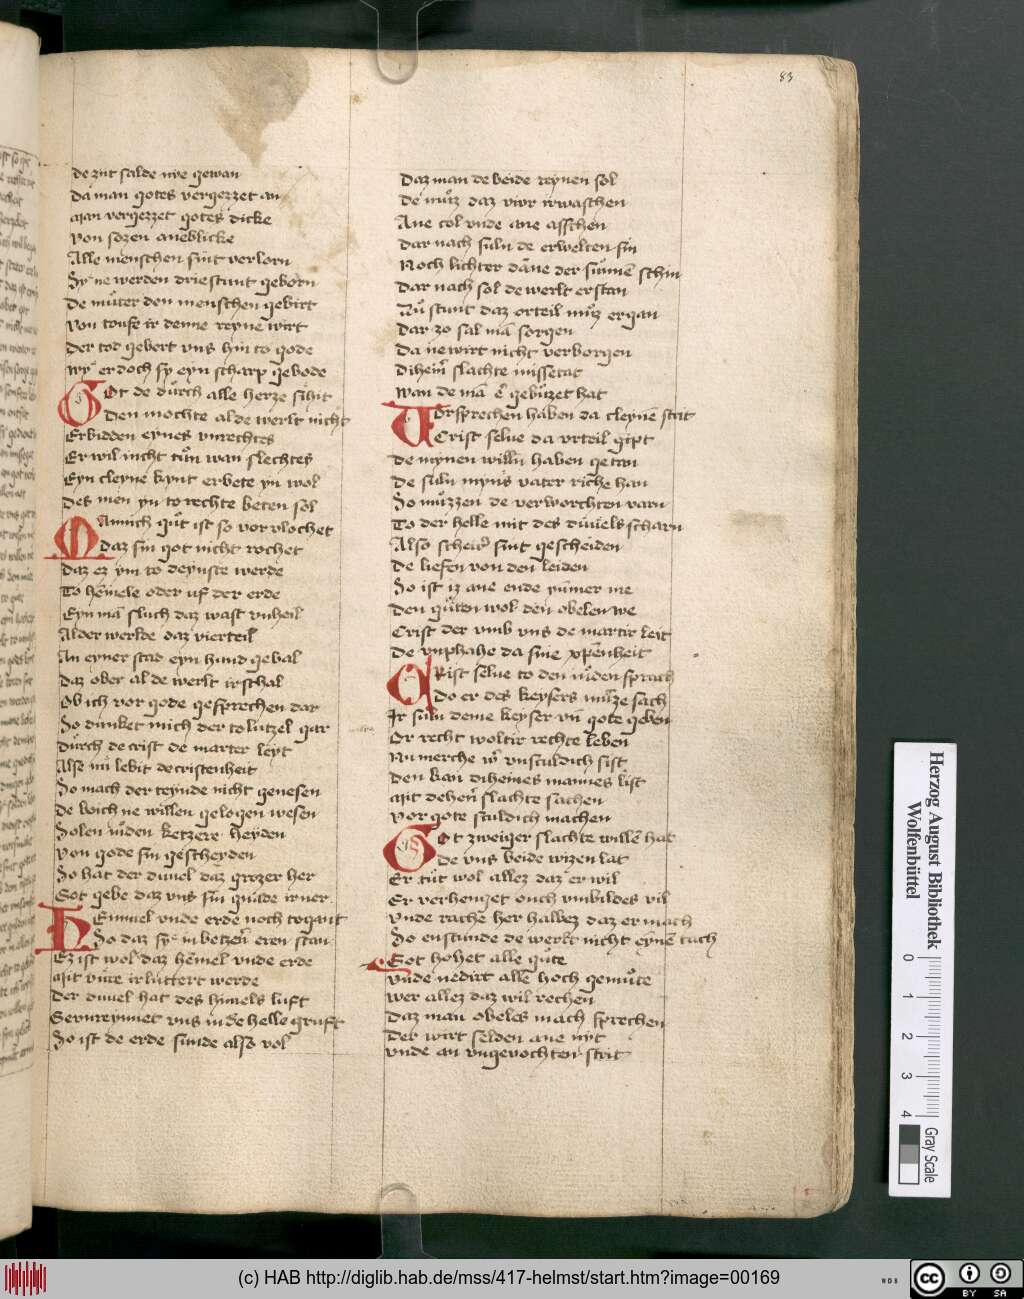 83
de zut salde nye gewan
Da man gotes vergezzet an
Man vergezzet gotes dicke
Von sozen aneblicke
Alle menschen sint verlorn
Sy ne werden driestunt geborn
De můter den menschen gebirt
Von toufe ir denne reyne wirt
Der tod gebert vns hin to gode
Wy er doch sy eyn scharp gebode
Got de důrch alle herze sihit
Den mochte al de werlt nicht
Erbidden eynes vnrechtes
Er wil nicht tůn wan slechtes
Eyn cleyne kynt erbete yn wol
Des men yn to rechte beten sol
Mannich gůt ist so vor vlochet
daz sin got nicht rochet
Daz ez ym to deynste werde
To hēmele oder uf der erde
Eyn mā sluch daz wast vnheil
Al der werlde daz vierteil
An eyner stad eyn hund gebal
Daz ober al de werlt irschal
Ob ich vor gode gesprechen dar
So dunket mich der to lutzel gar
Důrch de crist de marter leyt
Alse nu lebit de cristenheit
So mach der teynde nicht genesen
De boich ne willen gelogen wesen
Solen ioden ketzere heyden
Von gode sin gescheyden
So hat der duuel daz grozer her
Got gebe daz vns sin gnade irner
Hemmel vnde erde noch togant
So daz sy in betzeren eren stan
Ez ist wol daz hēmel vnde erde
Mit vůre irluttert werde
Der duuel hat des himels luft
Gevnreynnet vns in de helle gruft
So ist de erde sunde also vol
Daz man de beide reynen sol
De můz daz vivr irwaschen
Ane col vnde ane asschen
Dar nach suln de erwelten sin
Noch lichter dāne der sunnē schin
Dar nach sol de werlt erstan
Zů stunt daz orteil můz ergan
Dar zo sal mā sorgen
Da ne wirt nicht verborgen
Diheinr slachte missetat
Wan de mā e gebůzet hat
Vorsprechen haben da cleynē strit
Crist selue da vrteil gipt
De mynen willn haben getan
De suln myns vater riche han
So můzzen de verworchten varn
To der helle mit des duuels scharn
Also scheir sint gescheiden
De liefen von den leiden
So ist iz ane ende ymmer me
Den gůten wol den obelen we
Crist der vmb vns de martir leit
De vnphahe da sine xpenheit
Crist selue to den ioden sprach
Do er des keysers můnze sach
Ir suln deme keyser vn gote geben
Er recht woltir rechte leben
Nu merche wer vnsculdich sist
Den kan diheines mannes list
Mit dehenr slachte sachen
Vor gote sculdich machen
Got zweiger slachte willē hat
De vns beide wizen lat
Er tůt wol allez daz er wil
Er verhenget ouch vnbildes vil
Vnde rache her halbez daz er mach
So enstunde de werlt nicht eynē tach
Got hohet alle gůte
Vnde nedirt allē hoch gemůte
Wer allez daz wil rechen
Daz man obeles mach sprechen
Der wirt selden ane nyt
Vnde an vngevochten strit
Herzog August Bibliothek
Wolfenbüttel
0 1 2 3 4
Gray Scale
(c) HAB http://diglib.hab.de/mss/417-helmst/start.htm?image=00169
WDB
cc BY SA